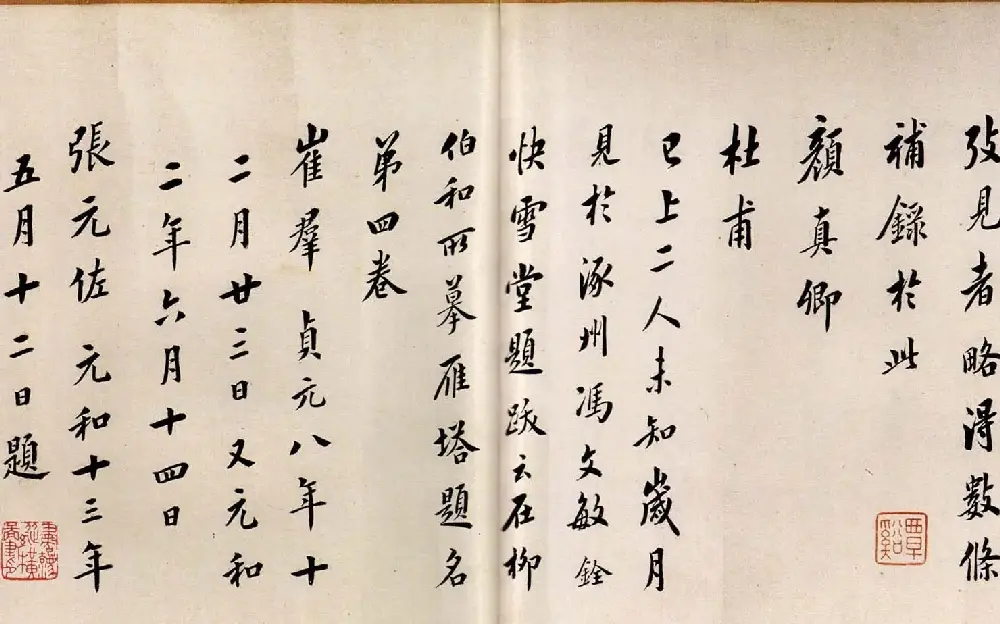 攷見者略淂數條
補錄於此
顏真卿
杜甫
已上二人未知歲月
見於涿州馮文敏銓
快雪堂題跋云石柳
伯和所摹雁塔題名
弟四卷
崔羣 貞元八年十
二月廿三日又元和
二年六月十四日
張元佐 元和十三年
五月十二日題
覃谿